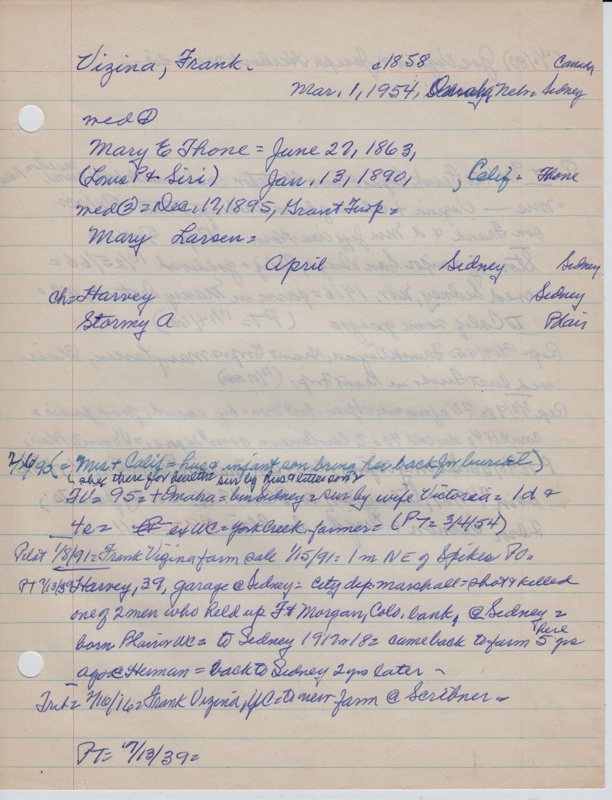 Vizina, Frank. c1858 Canada
Mar. 1, 1954, Omaha, Nebr= Sidney
med ①
Mary E Thone = June 27, 1863,
(Louis P + Siri) Jan. 13, 1890, , Calif = Thone
med ② = Dec. 17, 1895, Grant Twp =
Mary Larsen =
April Sidney Sidney
ch = Harvey Sidney
Stormy A Blair
(= Mrs + Calif = hus & infant son bring her back for burial)
FV = 95 = + Omaha = bur Sidney = sur by wife Victorea = 1d &
ev WC = York Creek farmer = (PT = 3/4/54)
Pilot 1/8/91 = Frank Vizina farm sale 1/15/91 = 1 m NE of Spikes PO.
PT 7/13/39 Harvey, 39, garage @ Sidney = City dep. marshall = shot & killed
one of 2 men who held up Ft Morgan, Colo. bank, @ Sidney =
born Blair WC = to Sidney 1917 or 18 = came back to farm here 5 yrs
ago @ Herman = back to Sidney 2 yrs later -
Trib = 2/10/16 = Frank Vizina, WC = to new farm @ Scribner =
PT = 7/13/39 =